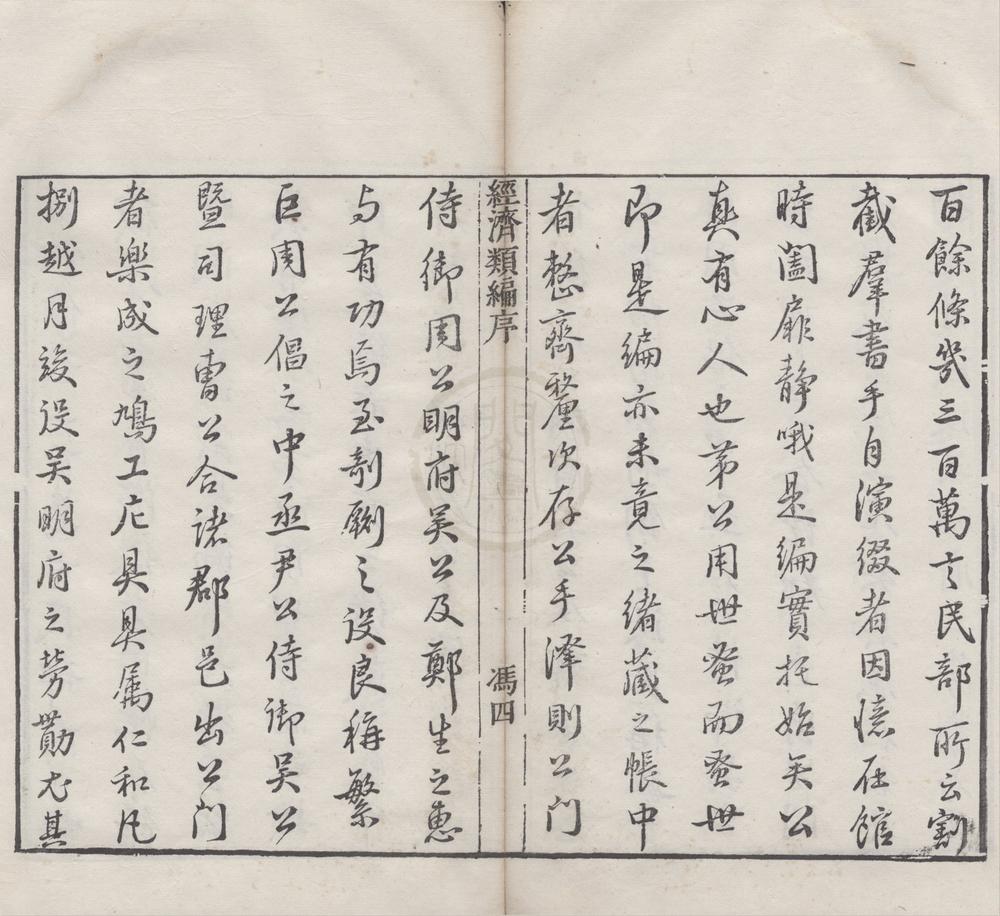 百餘條幾三百萬言民部所云割
截羣書手自演綴者因憶在館
時闔扉靜哦是編實托始矣公
真有心人也第公用世蚤而蚤世
即是編亦未竟之緒藏之帳中
者整齊釐次存公手澤則公門
經濟類編序
馮四
侍御周公明府吳公及鄭生之惠
与有功焉至剞劂之役良稱繁
巨周公倡之中丞尹公侍御吳公
暨司理曹公合諸郡邑出公門
者樂成之鳩工庀具具屬仁和凡
捌越月竣役吳明府之勞勩尤其